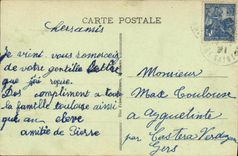 CARTE POSTALE
Je vient vous remercier
de votre gentille lettre
que j'ai reçue.
Des compliment a tout
la famille toulouse ainsi
que au
amitié de Pierre
Monsieur
Max Toulouse
a Ayguetinte
par Castéra Verduzan
Gers